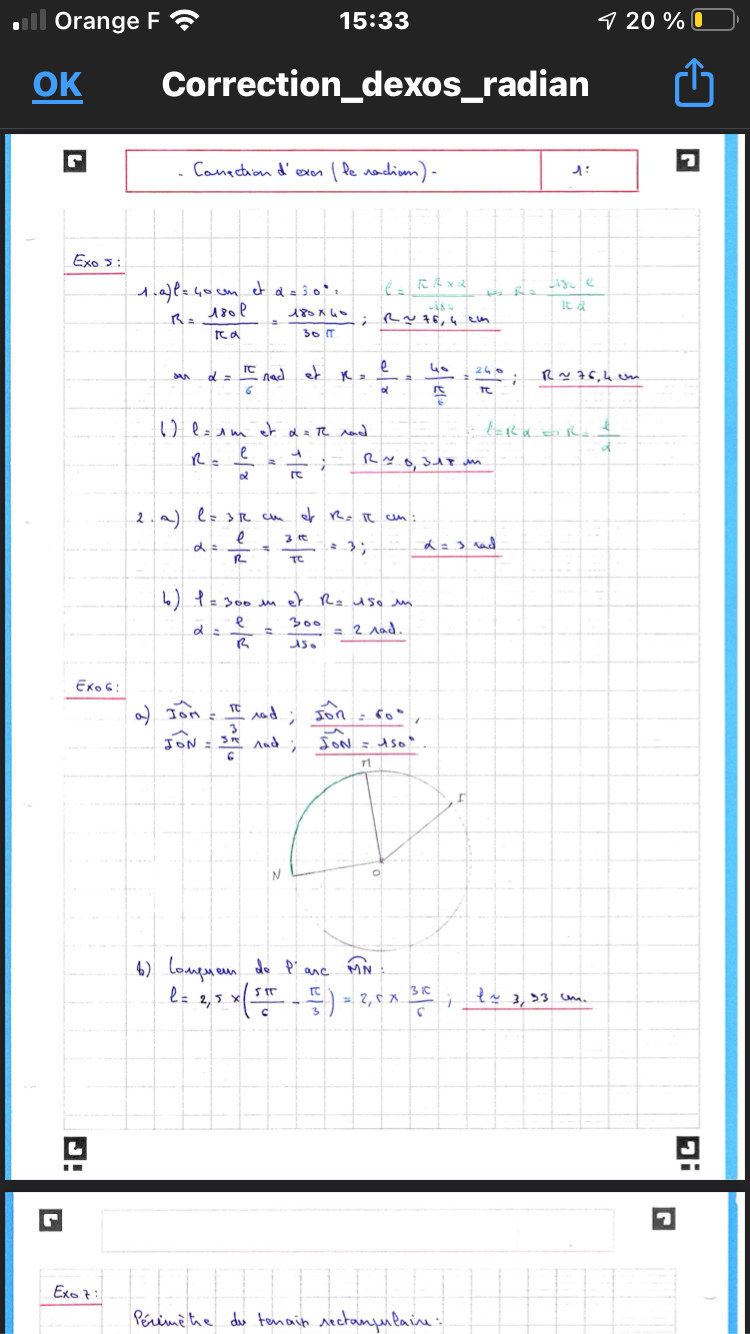 Orange F 15:33 20 %
OK Correction_dexos_radian
- Correction d'exos (le radian) - 1:
Exo 5 :
1. a) l = 40 cm et α = 30° : l = πR×α/180 ⇔ R = 180 l/πα
R = 180l/πα = 180×40/30π ; R ≃ 76,4 cm
ou α = π/6 rad et R = l/α = 40/(π/6) = 240/π ; R ≃ 76,4 cm
b) l = 1 m et α = π rad : l = Rα ⇔ R = l/α
R = l/α = 1/π ; R ≃ 0,318 m
2. a) l = 3π cm et R = π cm :
α = l/R = 3π/π = 3 ; α = 3 rad
b) l = 300 m et R = 150 m
α = l/R = 300/150 = 2 rad.
Exo 6 :
a) IOM = π/3 rad ; IOM = 60° ,
ION = 5π/6 rad ; ION = 150° .
M
I
N
O
b) Longueur de l'arc MN :
l = 2,5 × (5π/6 - π/3) = 2,5 × 3π/6 ; l ≃ 3,93 cm.
Exo 7 :
Périmètre du terrain rectangulaire :